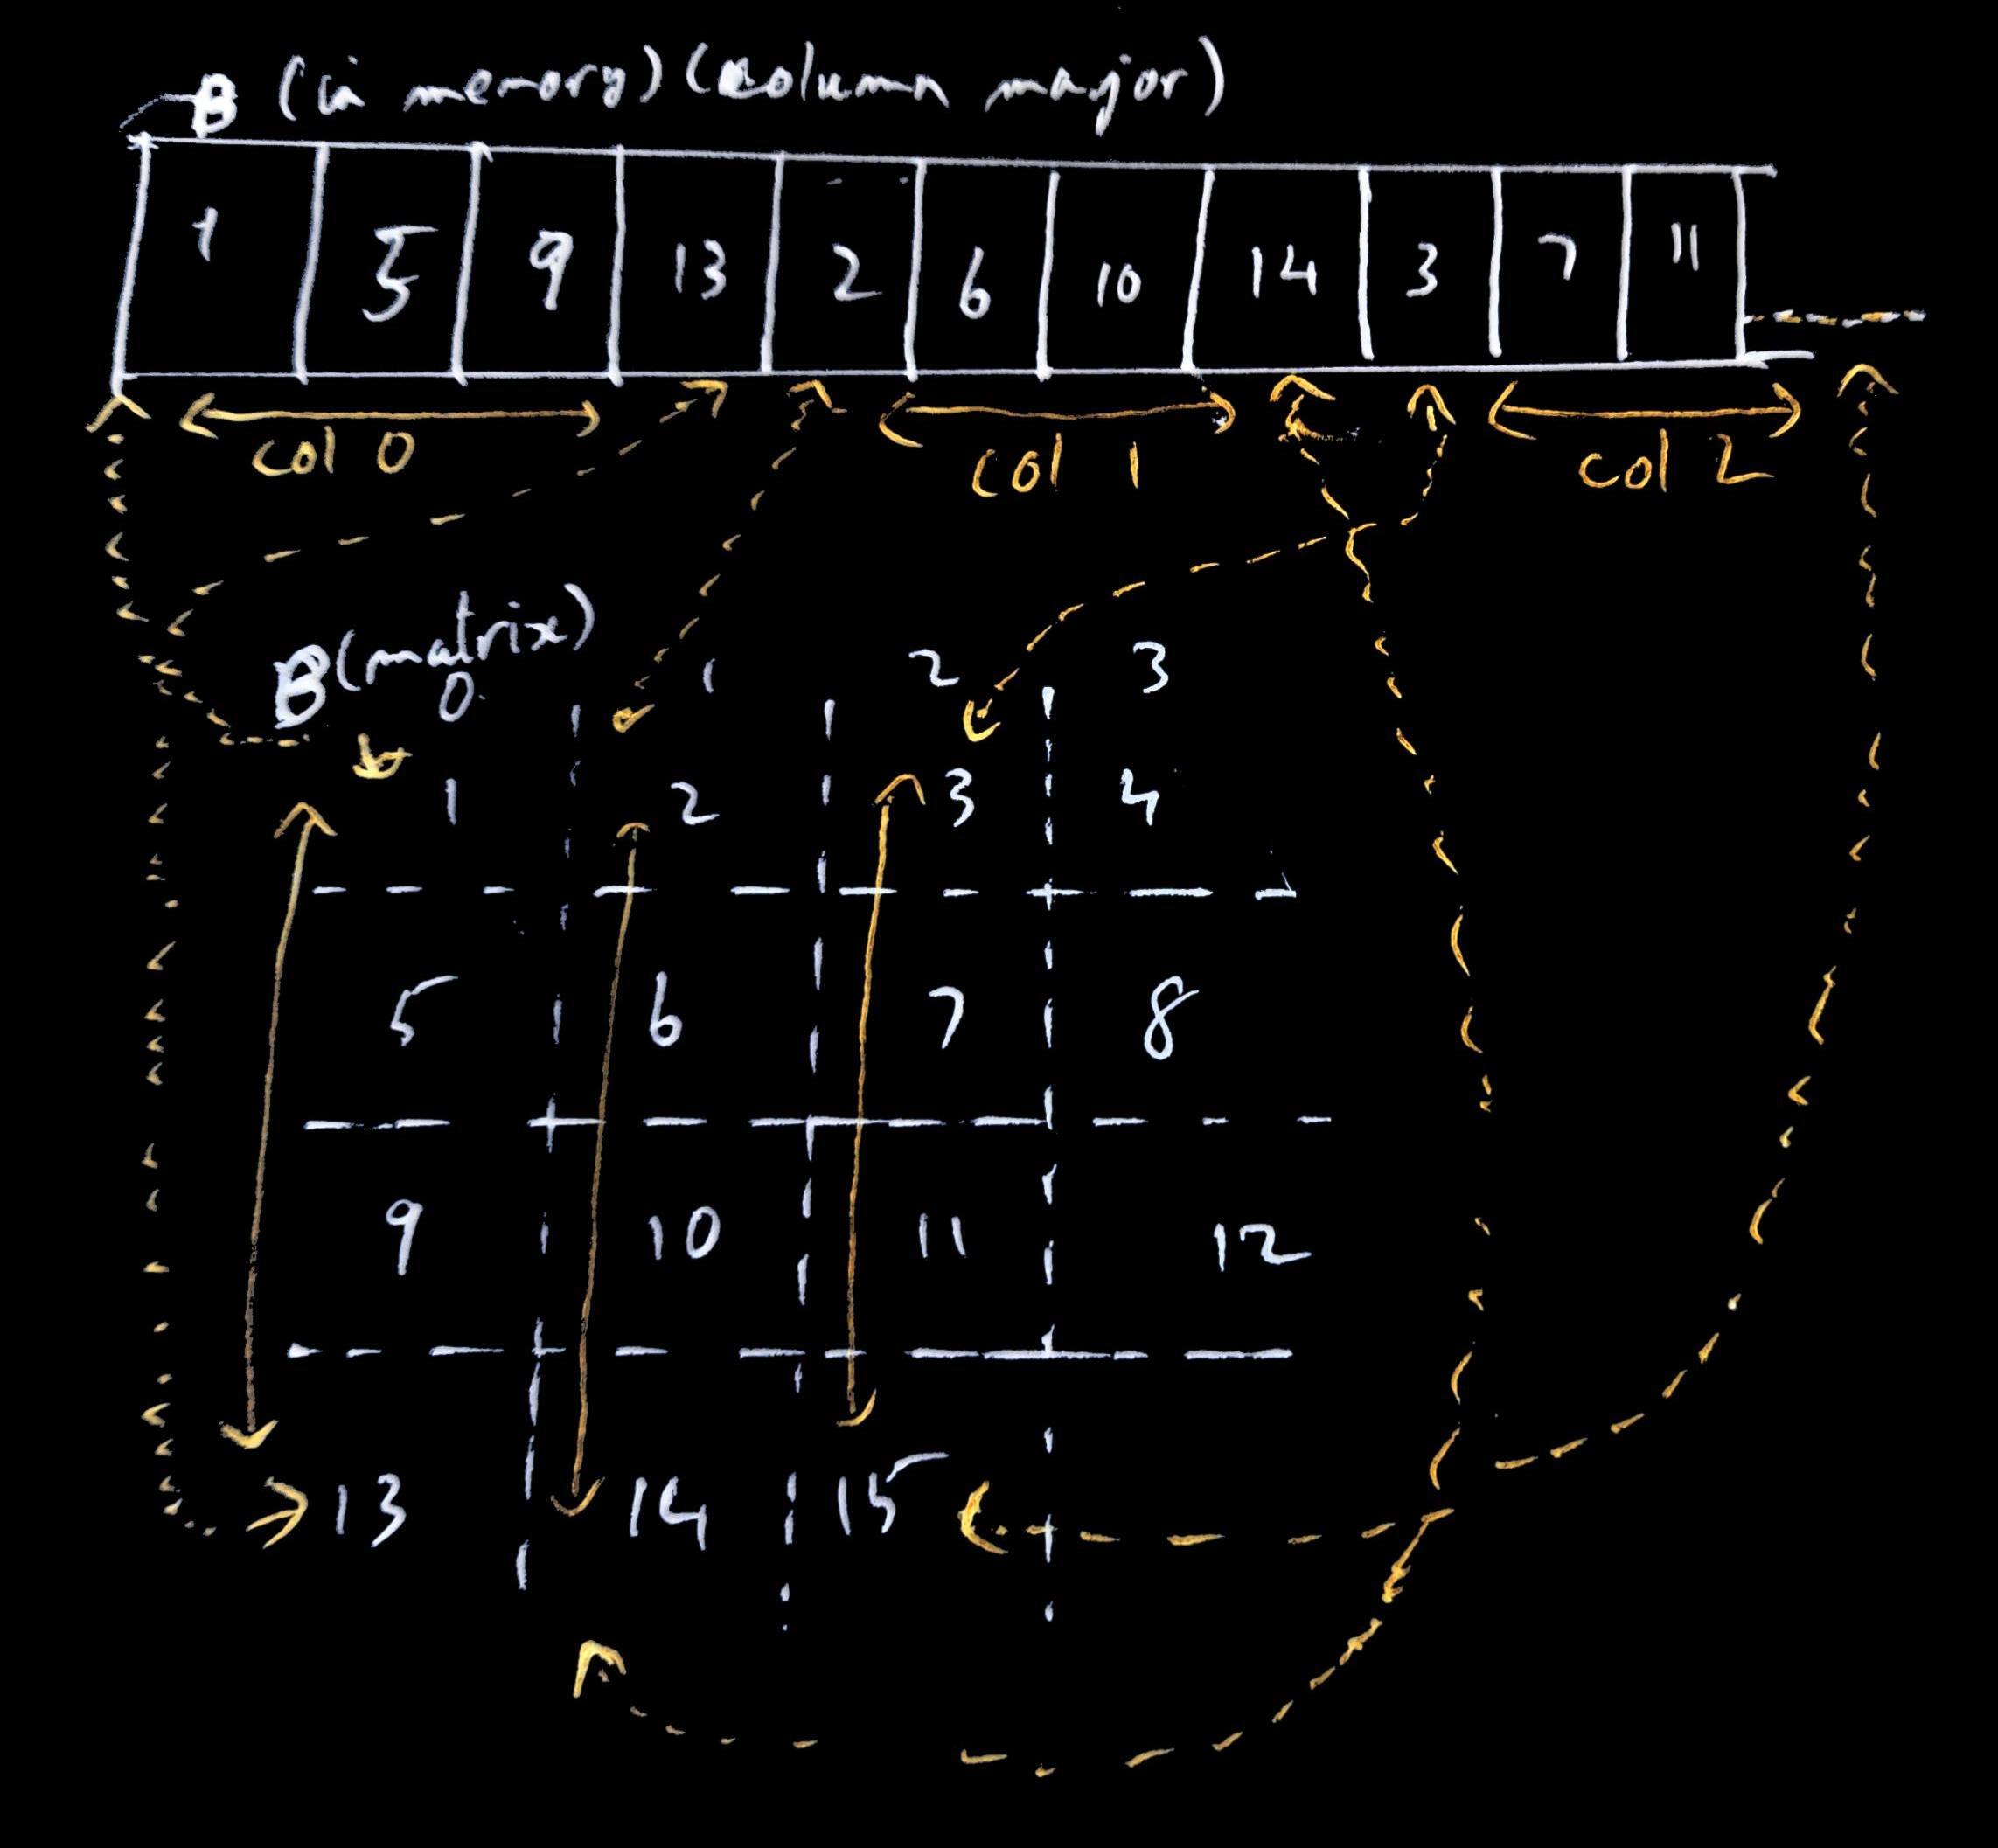 B (in memory) (column major)
1 5 9 13 2 6 10 14 3 7 11
col 0 col 1 col 2
B (matrix)
0 1 2 3
1 2 3 4
5 6 7 8
9 10 11 12
13 14 15